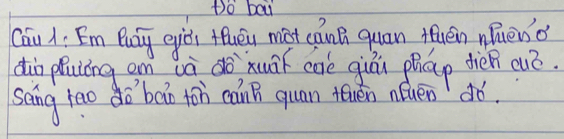 Đề bài
Câu 1: Em hãy giới thiệu một cảnh quan thiên nhiên ở
địa phương em và đề xuất các giải pháp tích cực.
sáng tạo để bảo tồn cảnh quan thiên nhiên đó.